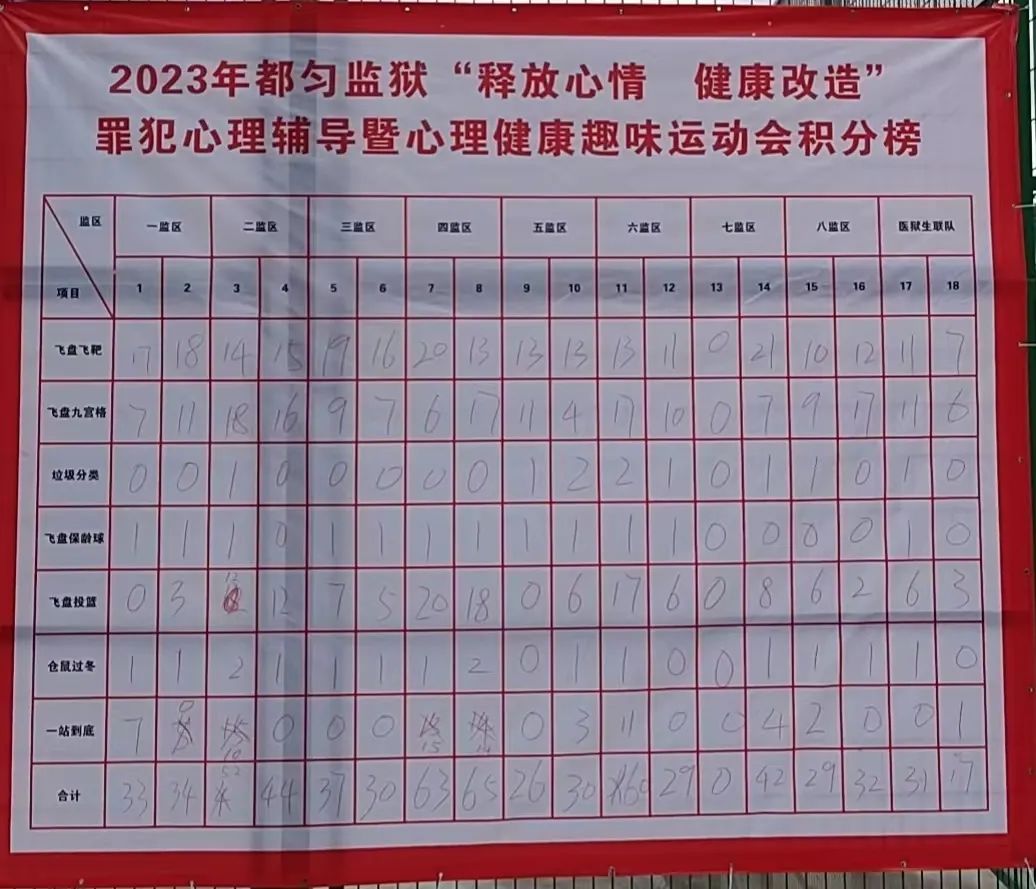 2023年都匀监狱“释放心情 健康改造”
罪犯心理辅导暨心理健康趣味运动会积分榜
监区 一监区 二监区 三监区 四监区 五监区 六监区 七监区 八监区 医狱生联队
项目 1 2 3 4 5 6 7 8 9 10 11 12 13 14 15 16 17 18
飞盘飞靶 17 18 14 15 19 16 20 13 13 13 13 11 0 21 10 12 11 7
飞盘九宫格 7 11 18 16 9 7 6 17 11 4 17 10 0 7 9 17 11 6
垃圾分类 0 0 1 0 0 0 0 0 1 2 2 1 0 1 1 0 1 0
飞盘保龄球 1 1 1 0 1 1 1 1 1 1 1 1 0 0 0 0 1 0
飞盘投篮 0 3 12 7 5 20 18 0 6 17 6 0 8 6 2 6 3
仓鼠过冬 1 1 2 1 1 1 1 2 0 1 1 0 0 1 1 1 1 0
一站到底 7 0 10 0 0 0 15 14 0 3 11 0 0 4 2 0 0 1
合计 33 34 52 44 37 30 63 65 26 30 60 29 0 42 29 32 31 17